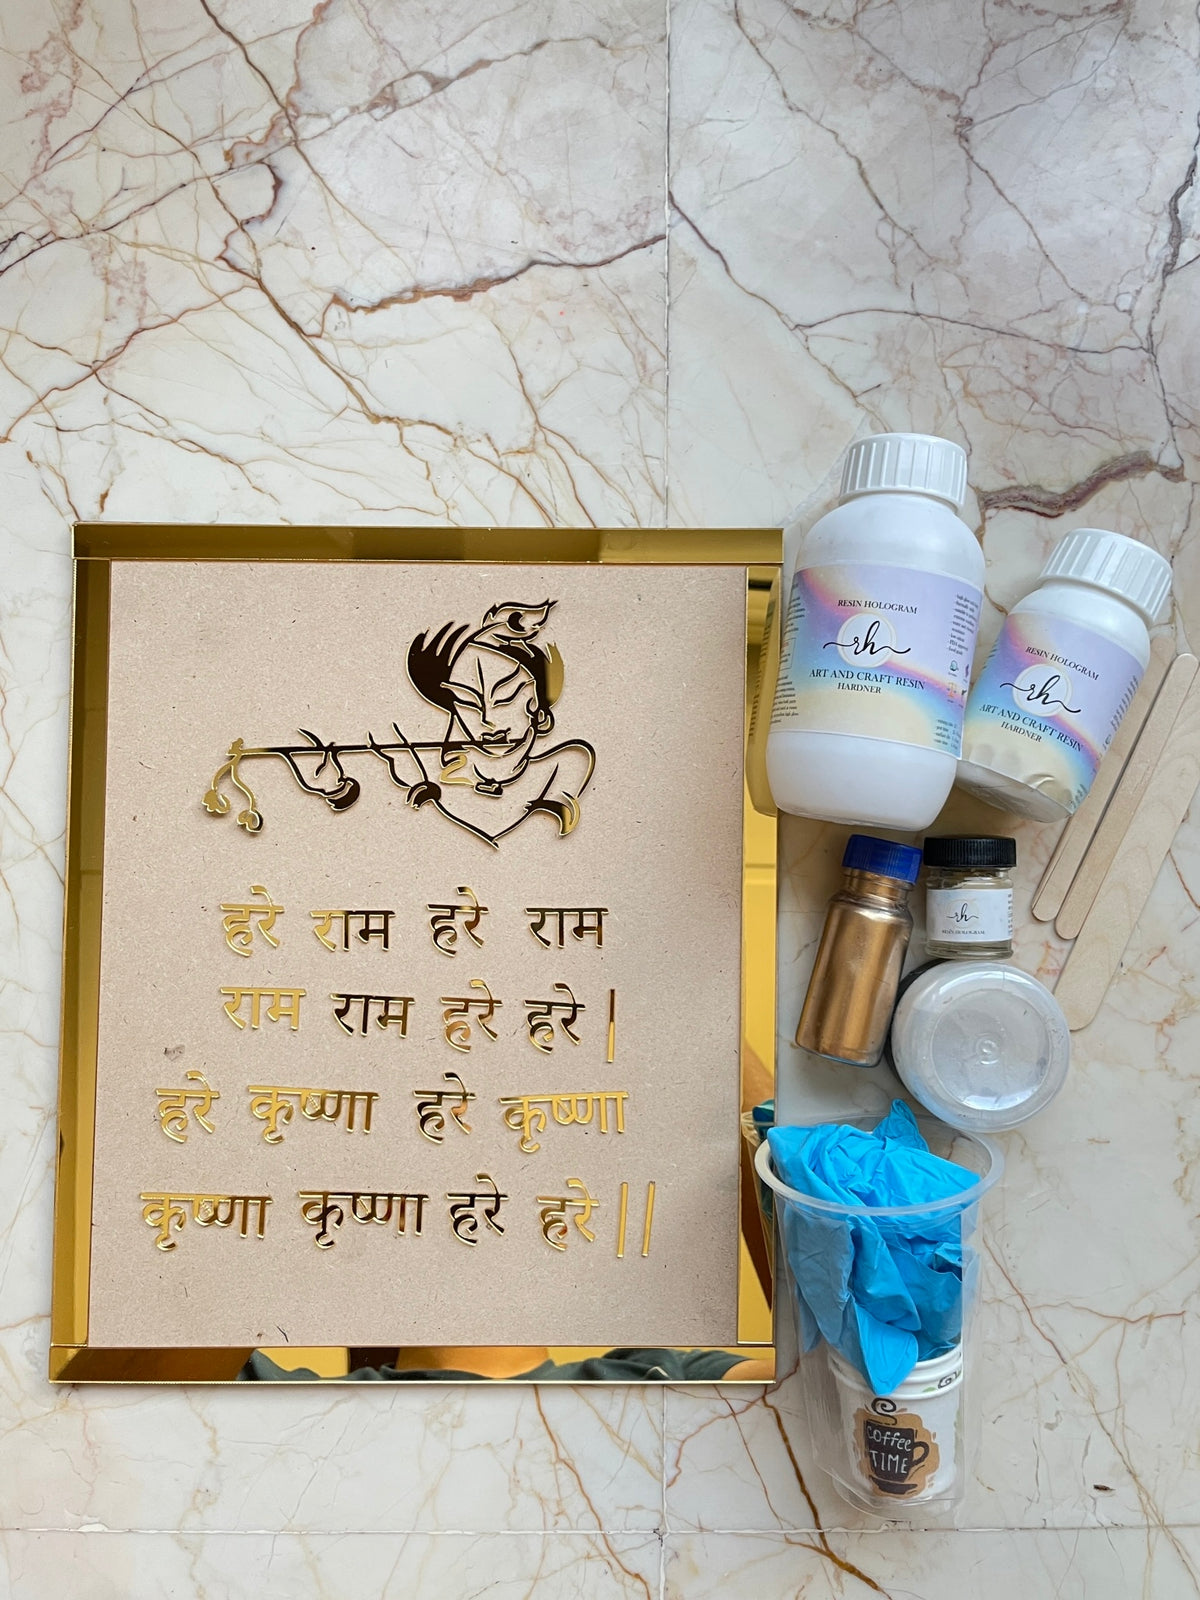 हरे राम हरे राम
राम राम हरे हरे |
हरे कृष्णा हरे कृष्णा
कृष्णा कृष्णा हरे हरे ||
RESIN HOLOGRAM
rh
ART AND CRAFT RESIN
HARDNER
RESIN HOLOGRAM
rh
ART AND CRAFT RESIN
HARDNER
rh
RESIN HOLOGRAM
coffee
TIME